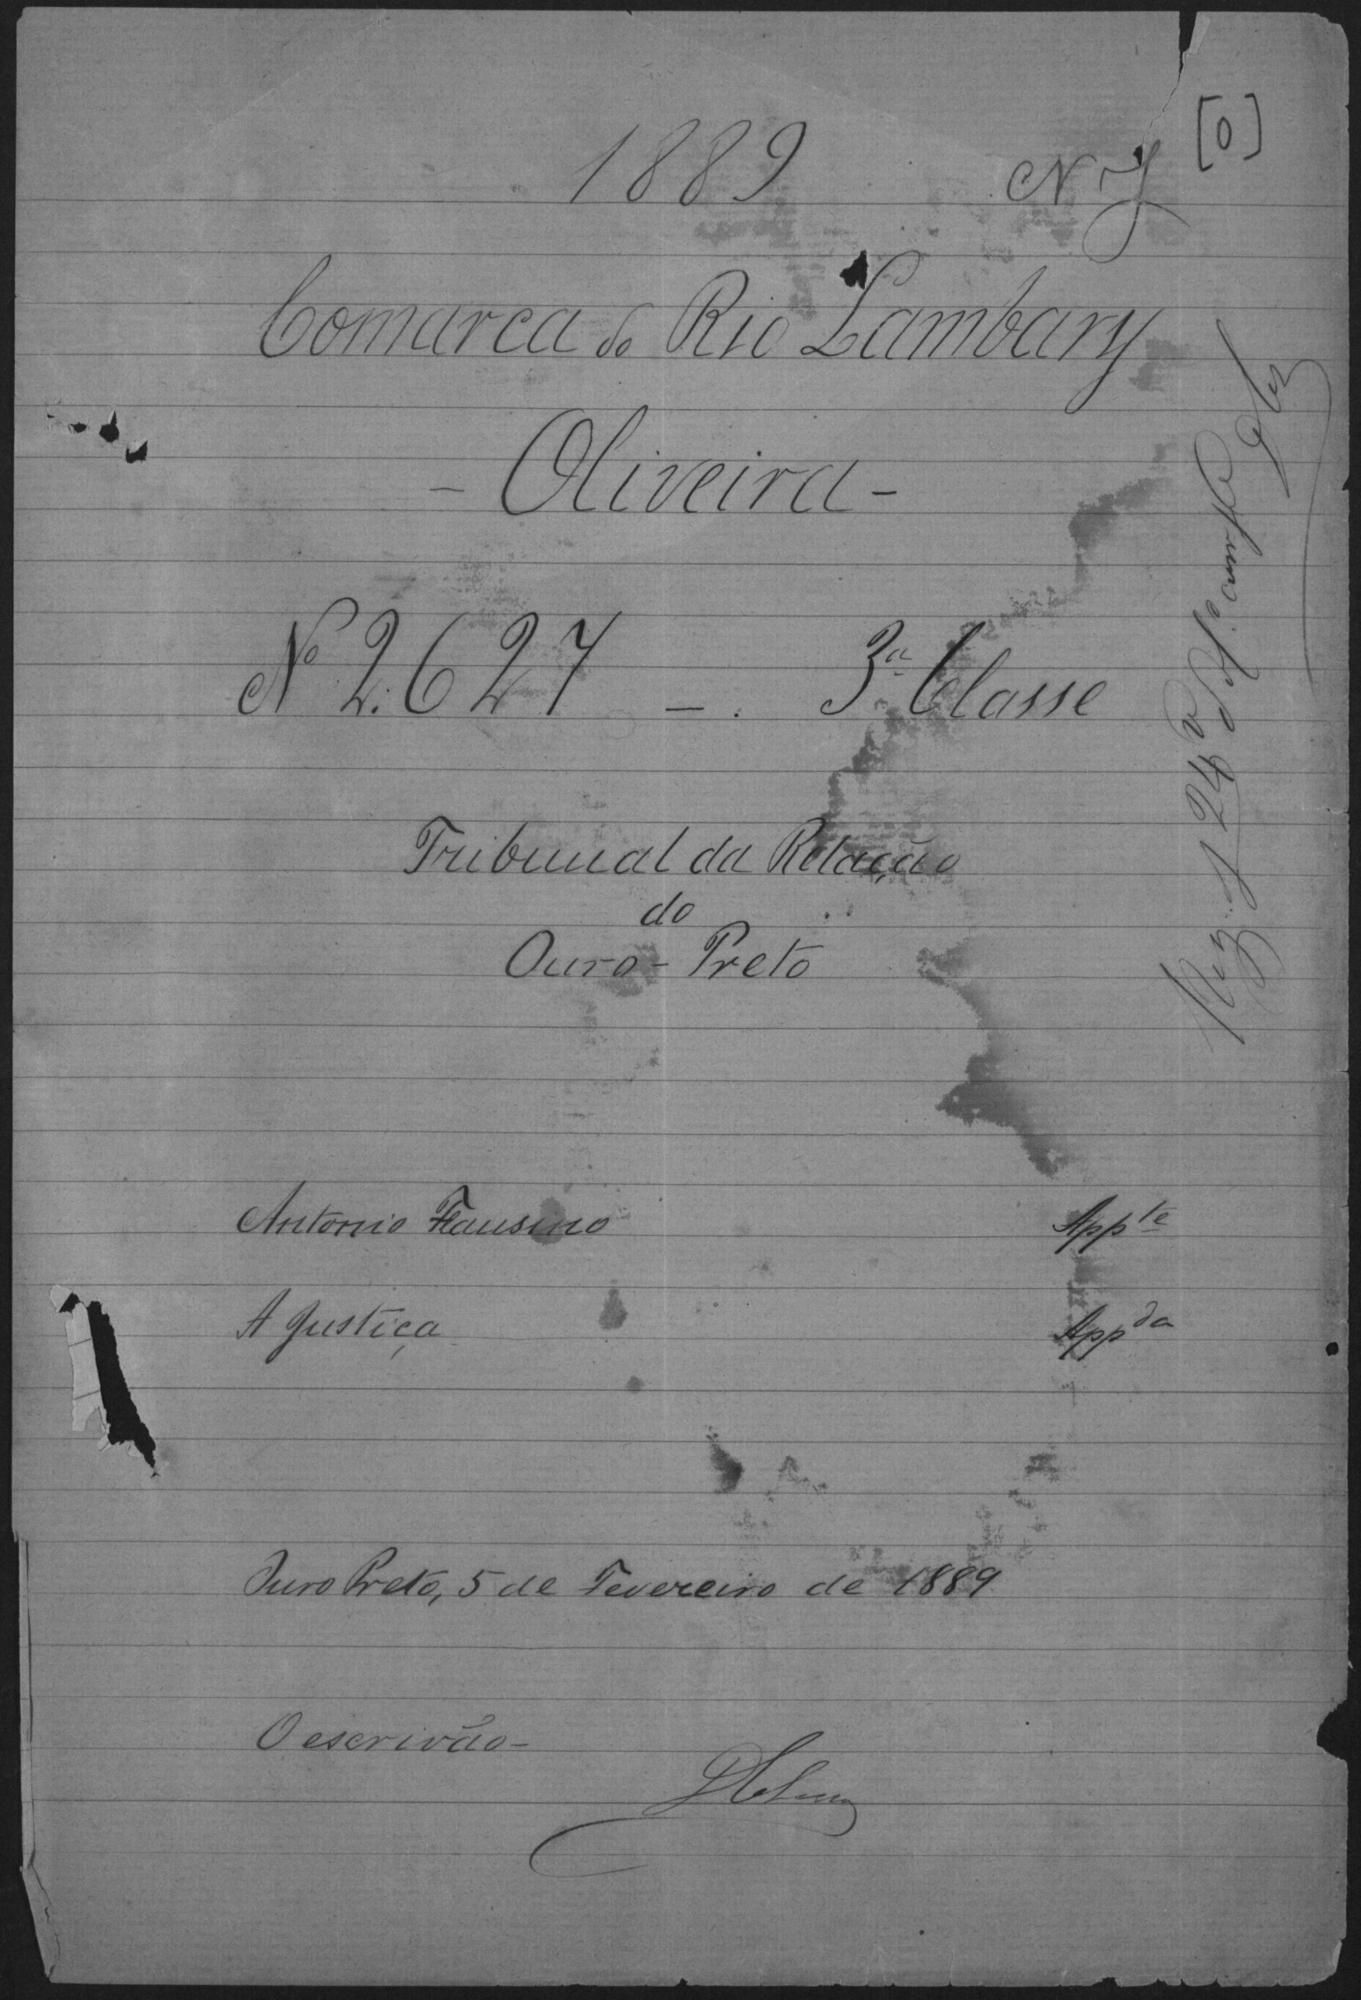 1889
[0]
Comarca do Rio Lambary
- Oliveira -
Nº 2.627 - . 3ª Classe
Tribunal da Relação
do
Ouro-Preto
Antonio Fausino Appte
A Justiça Appda
Ouro Preto, 5 de Fevereiro de 1889
O escrivão-